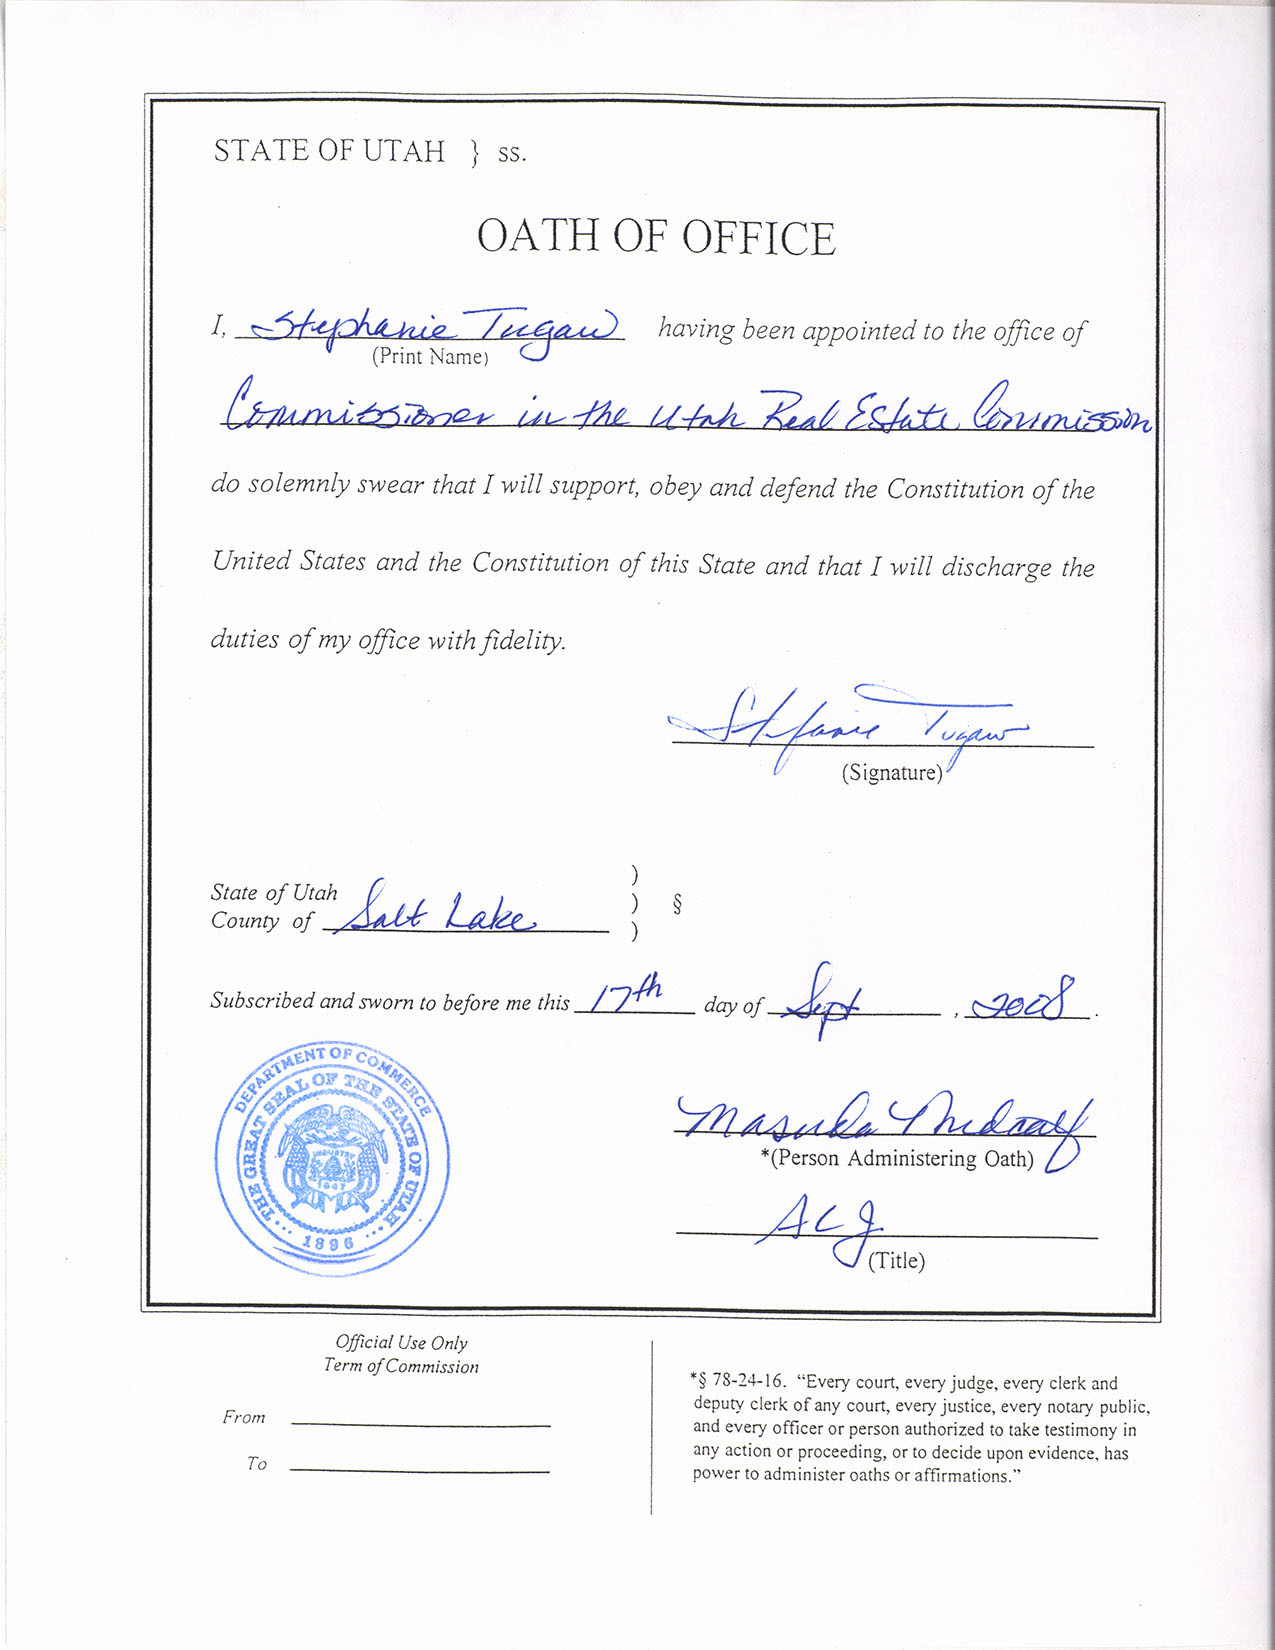 STATE OF UTAH } ss.
OATH OF OFFICE
I, Stephanie Tugaw having been appointed to the office of
(Print Name)
Commissioner in the Utah Real Estate Commission
do solemnly swear that I will support, obey and defend the Constitution of the
United States and the Constitution of this State and that I will discharge the
duties of my office with fidelity.
Stefanie Tugaw
(Signature)
State of Utah )
County of Salt Lake ) §
)
Subscribed and sworn to before me this 17th day of Sept, 2008.
DEPARTMENT OF COMMERCE
THE GREAT SEAL OF THE STATE OF UTAH
INDUSTRY
1847
1896
Masuda Medcalf
*(Person Administering Oath)
ACJ
(Title)
Official Use Only
Term of Commission
From
To
*§ 78-24-16. “Every court, every judge, every clerk and
deputy clerk of any court, every justice, every notary public,
and every officer or person authorized to take testimony in
any action or proceeding, or to decide upon evidence, has
power to administer oaths or affirmations.”